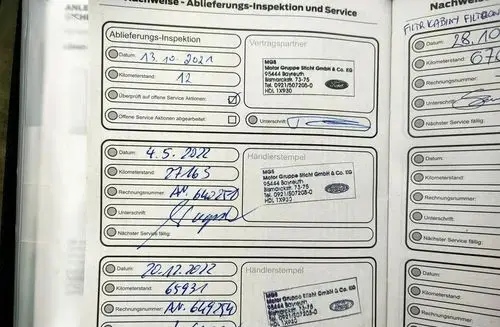 Nachweise - Ablieferungs-Inspektion und Service
Ablieferungs-Inspektion
Datum: 13.10.2021
Kilometerstand: 12
Überprüft auf offene Service Aktionen:
Offene Service Aktionen abgearbeitet:
Vertragspartner
MGS
Motor Gruppe Sticht GmbH & Co. KG
95444 Bayreuth
Bismarckstr. 73-75
Tel. 0921/507205-0
HDL 1X930
Ford
Unterschrift:
Datum: 4.5.2022
Kilometerstand: 27165
Rechnungsnummer: AN. 640258
Unterschrift:
Nächster Service fällig:
Händlerstempel
MGS
Motor Gruppe Sticht GmbH & Co. KG
95444 Bayreuth
Bismarckstr. 73-75
Tel. 0921/507205-0
HDL 1X930
Ford
Datum: 20.12.2022
Kilometerstand: 65931
Rechnungsnummer: AN. 649254
Händlerstempel
MGS
Motor Gruppe Sticht GmbH & Co. KG
95444 Bayreuth
Bismarckstr. 73-75
Tel. 0921/507205-0
HDL 1X930
Ford
Nachweise
FILTR KABINY
Datum: 28.10
Kilometerstand:
Rechnungsnummer:
Unterschrift:
Nächster Service fällig:
Datum:
Kilometerstand:
Rechnungsnummer:
Unterschrift:
Nächster Service fällig:
Datum:
Kilometerstand:
Rechnungsnummer: